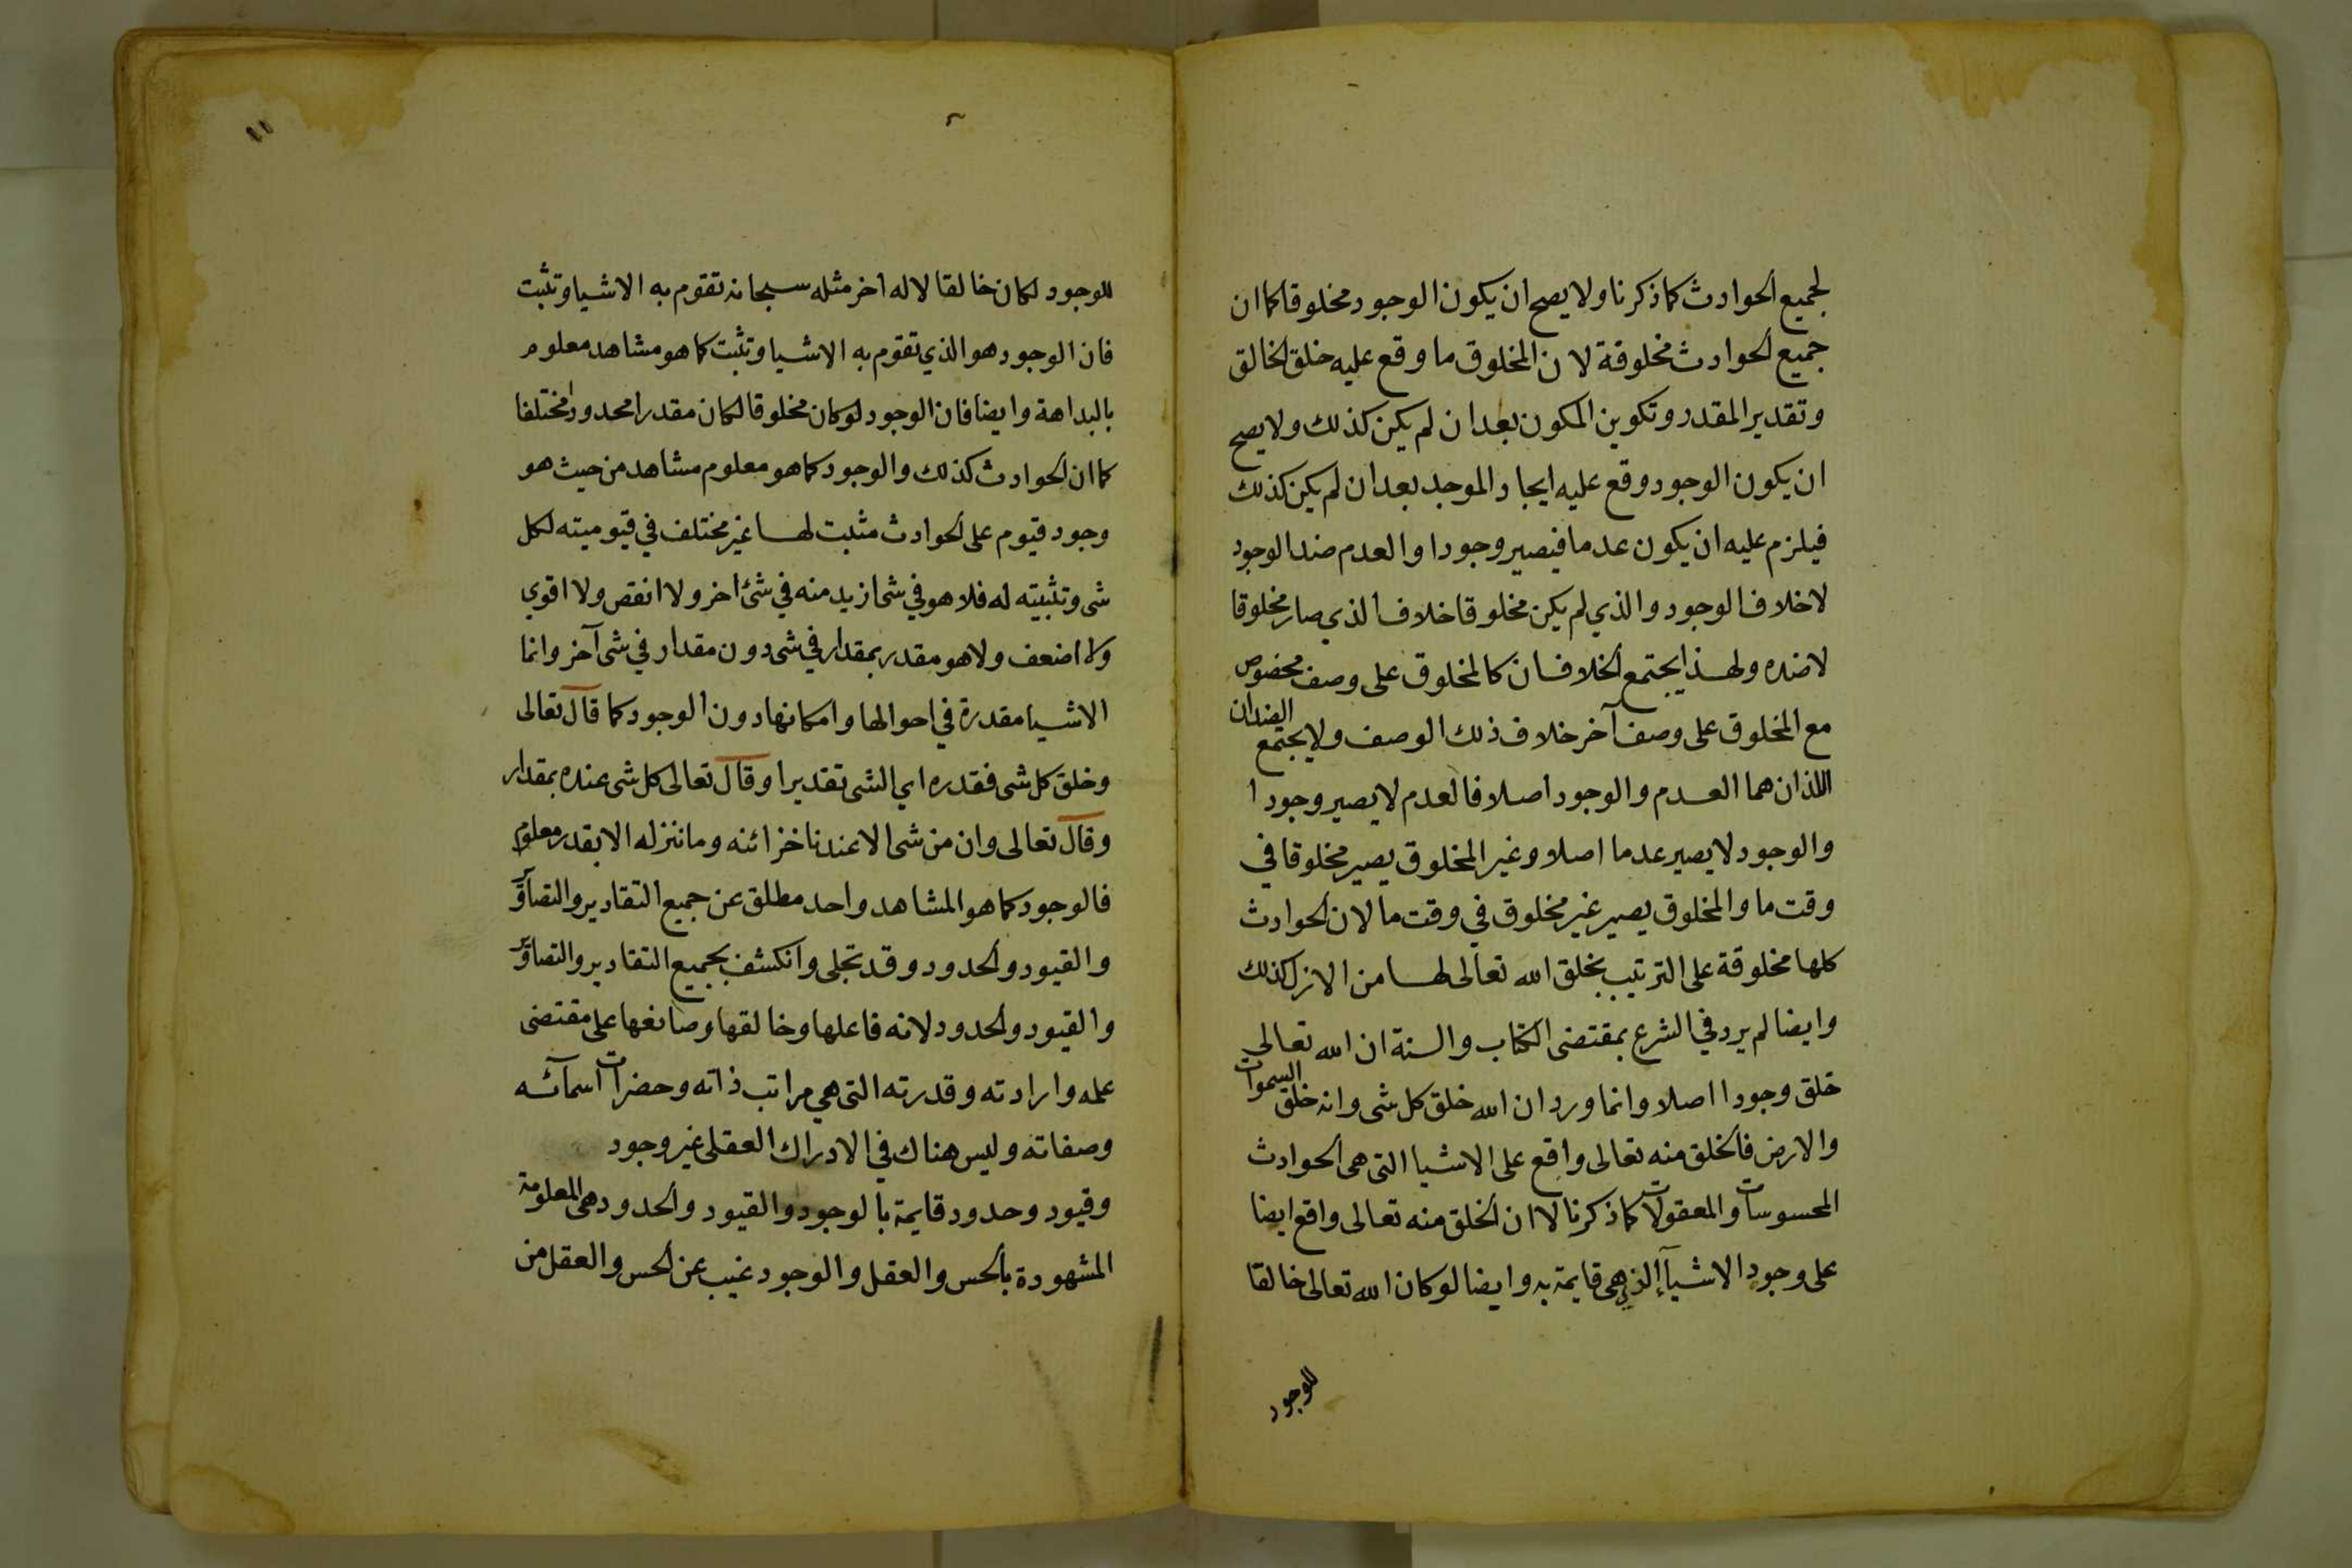 لجميع الحوادث كما ذكرنا ولا يصح ان يكون الوجود مخلوقا كما ان
جميع الحوادث مخلوقة لان المخلوق ما وقع عليه خلق الخالق
وتقدير المقدر وتكوين المكون بعد ان لم يكن كذلك ولا يصح
ان يكون الوجود وقع عليه ايجاد الموجد بعد ان لم يكن كذلك
فيلزم عليه ان يكون عدما فيصير وجودا والعدم ضد الوجود
لا خلاف الوجود والذي لم يكن مخلوقا خلاف الذي صار مخلوقا
لا ضده ولهذا يجتمع الخلافان كالمخلوق على وصف مخصوص
مع المخلوق على وصف آخر خلاف ذلك الوصف ولا يجتمع الضدان
اللذان هما العدم والوجود اصلا فالعدم لا يصير وجودا
والوجود لا يصير عدما اصلا وغير المخلوق يصير مخلوقا في
وقت ما والمخلوق يصير غير مخلوق في وقت ما لان الحوادث
كلها مخلوقة على الترتيب بخلق الله تعالى لها من الازل كذلك
وايضا لم يرد في الشرع بمقتضى الكتاب والسنة ان الله تعالى
خلق وجودا اصلا وانما ورد ان الله خلق كل شى وانه خلق السموات
والارض فالخلق منه تعالى واقع على الاشيا التى هى الحوادث
المحسوسات والمعقولات كما ذكرنا لا ان الخلق منه تعالى واقع ايضا
على وجود الاشيآ الذي هى قايمة به وايضا لو كان الله تعالى خالقا
للوجود
١١
للوجود لكان خالقا لاله اخر مثله سبحانه تقوم به الاشيا وتثبت
فان الوجود هو الذي تقوم به الاشيا وتثبت كما هو مشاهد معلوم
بالبداهة وايضا فان الوجود لو كان مخلوقا لكان مقدرا محدودا مختلفا
كما ان الحوادث كذلك والوجود كما هو معلوم مشاهد من حيث هو
وجود قيوم على الحوادث مثبت لها غير مختلف في قيوميته لكل
شى وتثبيته له فلا هو في شى ازيد منه في شئ اخر ولا انقص ولا اقوي
ولا اضعف ولا هو مقدر بمقدار في شى دون مقدار في شى آخر وانما
الاشيا مقدرة في احوالها وامكانها دون الوجود كما قال تعالى
وخلق كل شى فقدره اي الشى تقديرا وقال تعالى كل شى عنده بمقدار
وقال تعالى وان من شى الا عندنا خزائنه وما ننزله الا بقدر معلوم
فالوجود كما هو المشاهد واحد مطلق عن جميع التقادير والتصاوير
والقيود والحدود وقد تجلى وانكشف بجميع التقادير والتصاوير
والقيود والحدود لانه فاعلها وخالقها وصانعها على مقتضى
علمه وارادته وقدرته التى هي مراتب ذاته وحضرات اسمآئه
وصفاته وليس هناك في الادراك العقلى غير وجود
وقيود وحدود قايمة بالوجود والقيود والحدود هى المعلومة
المشهودة بالحس والعقل والوجود غيب عن الحس والعقل من